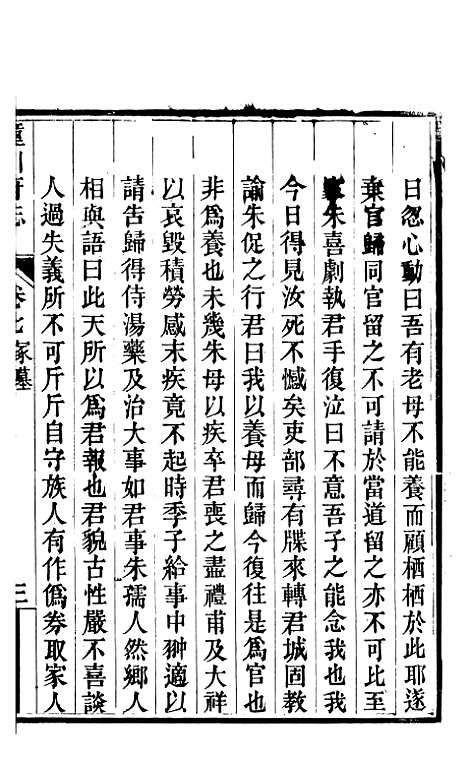 日忽心動曰吾有老母不能養而顧栖栖於此耶遂
棄官歸同官留之不可請於當道留之亦不可比至
朱喜劇執君手復泣曰不意吾子之能念我也我
今日得見汝死不憾矣吏部尋有牒來轉君城固教
諭朱促之行君曰我以養母而歸今復往是為官也
非為養也未幾朱母以疾卒君喪之盡禮甫及大祥
以哀毀積勞感末疾竟不起時季子給事中翀適以
請告歸得侍湯藥及治大事如君事朱孺人然鄉人
相與語曰此天所以為君報也君貌古性嚴不喜談
人過失義所不可斤斤自守族人有作偽券取家人
潼川府志
卷七 冢墓
三